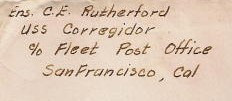 Ens. C.E. Rutherford
USS Corregidor
c/o Fleet Post Office
San Francisco, Cal